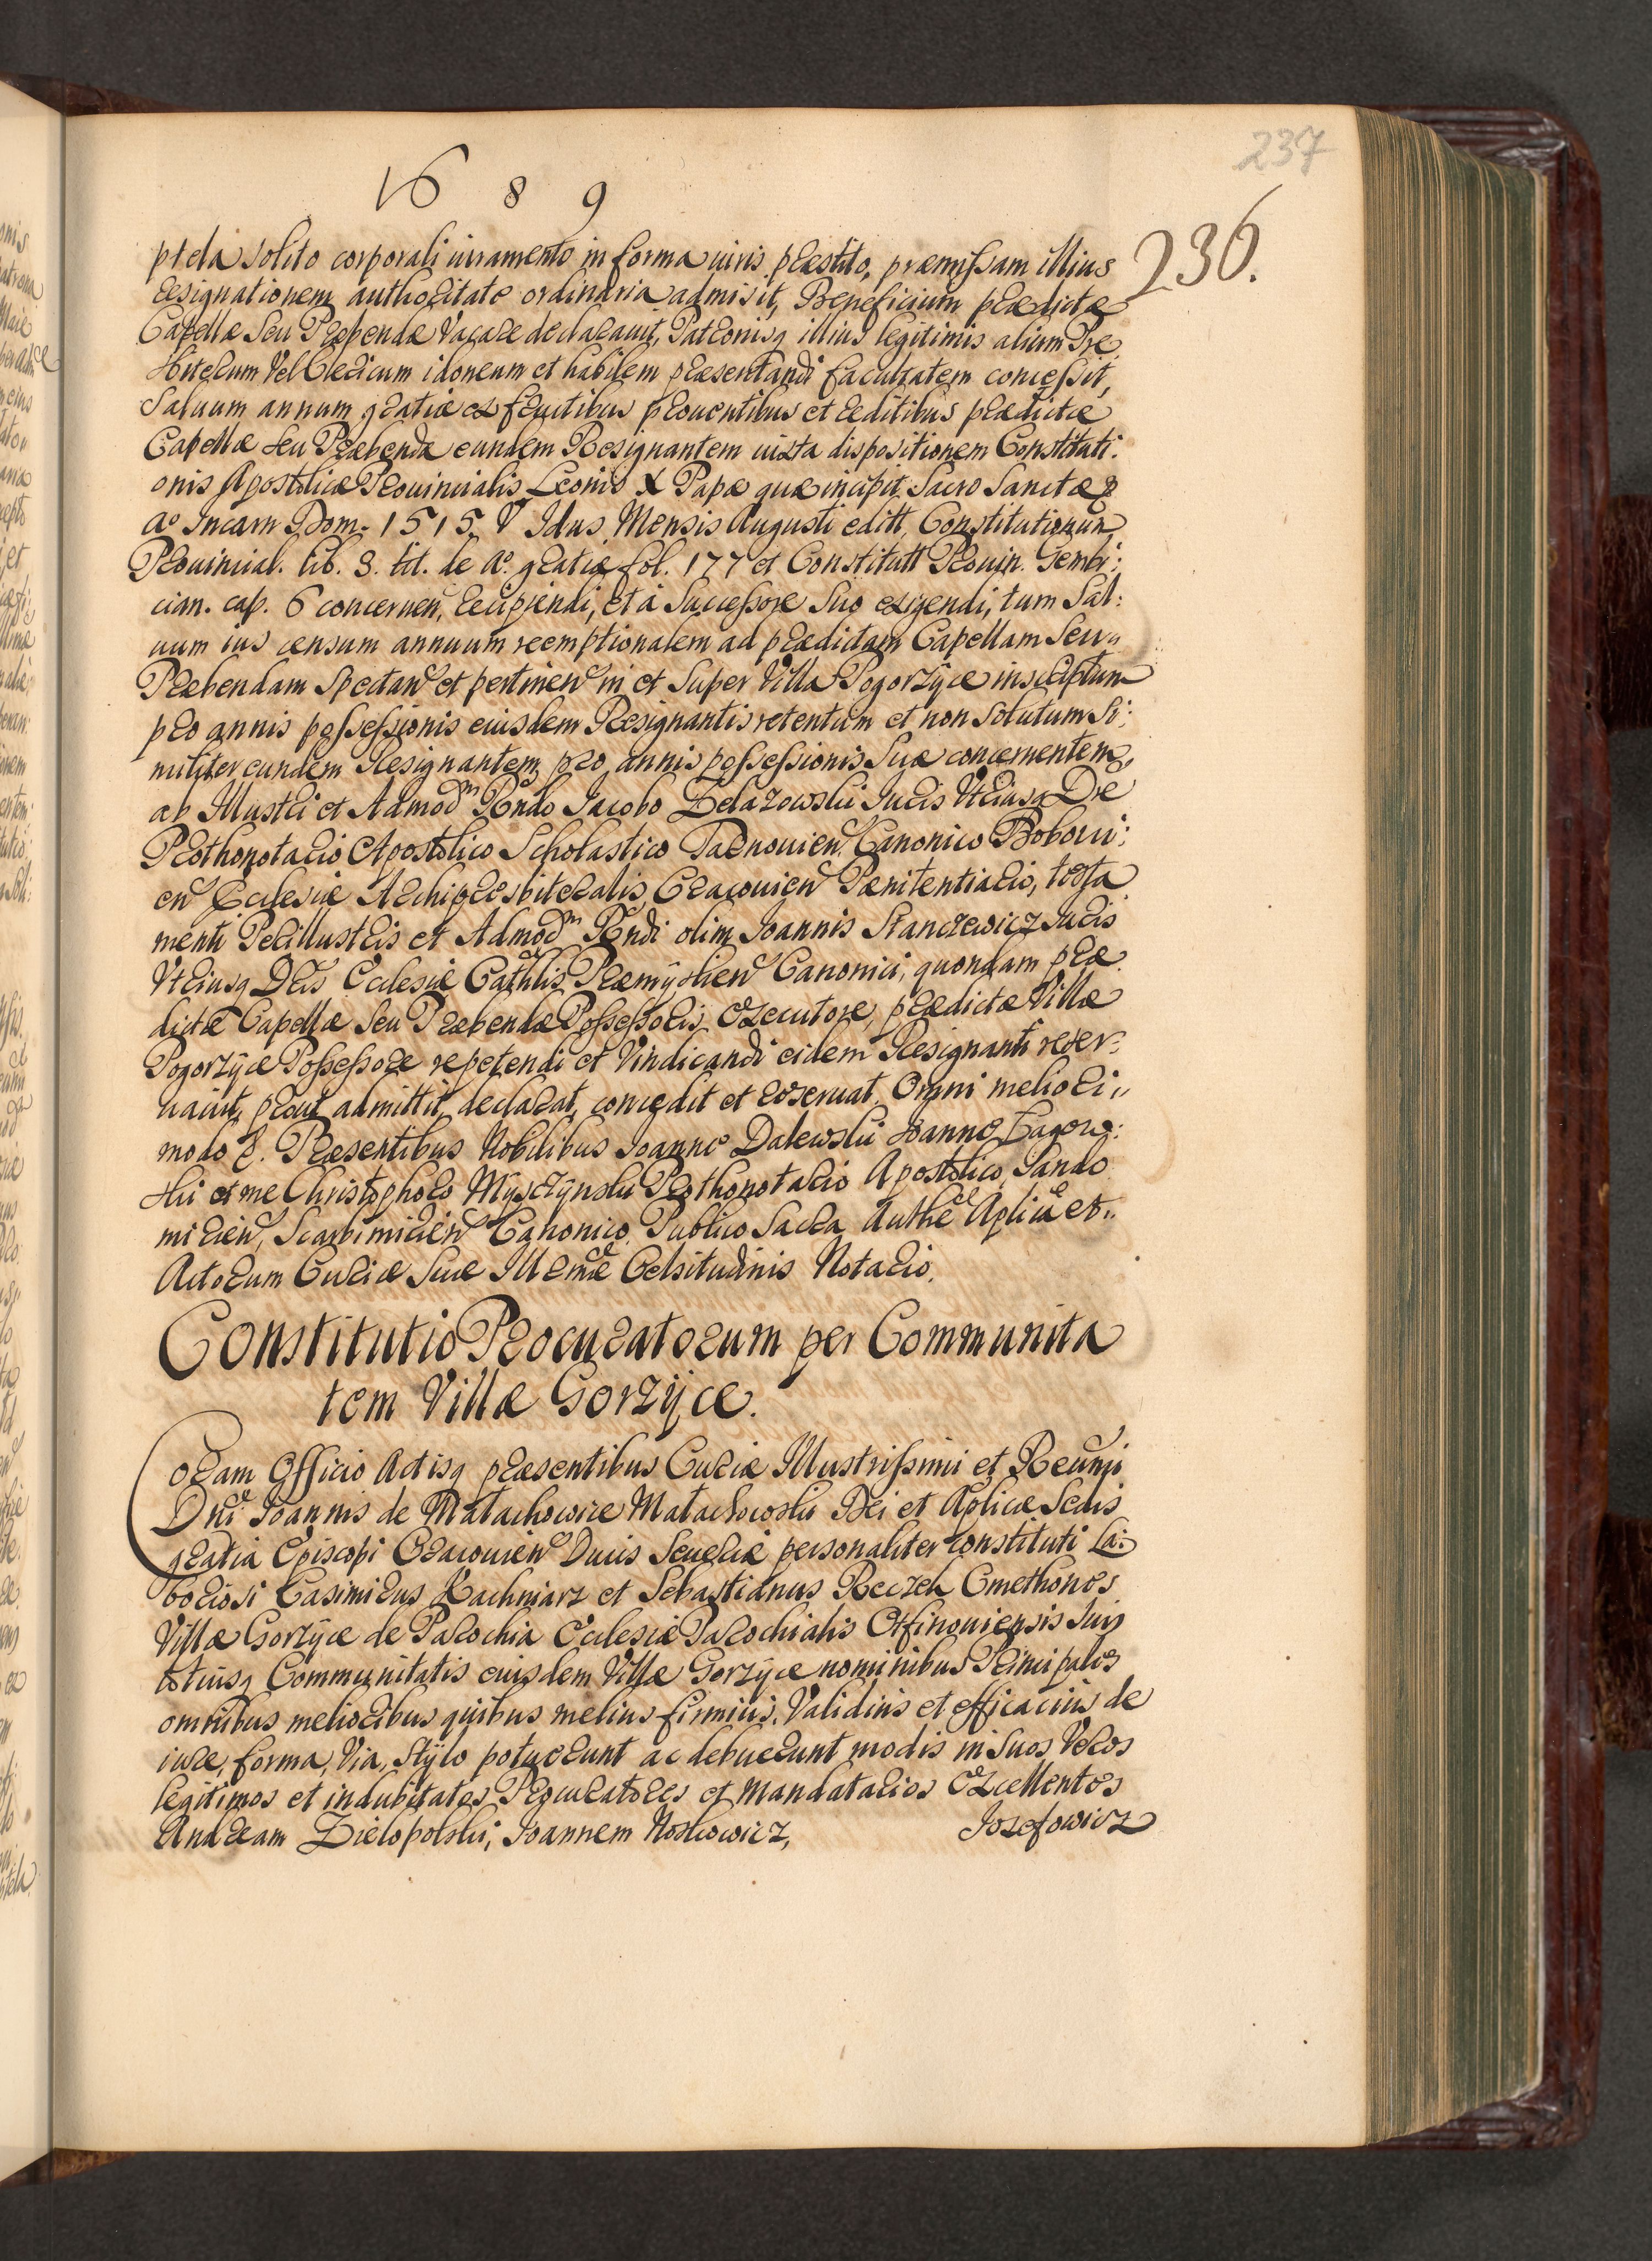 237
1689
236.
ptela solito corporali iuramento in forma iuris præstito, præmissam illius
resignationem authoritate ordinaria admisit, Beneficium prædictæ
Capellæ seu Præbendæ Vacare declarauit, Patronisq illius legitimis alium Pre
sbiterum Vel Clericum idoneum et habilem præsentandi facultatem concessit,
Saluum annum gratiæ ex fructibus prouentibus et reditibus prædictæ
Capellæ seu Præbendæ eundem Resignantem iuxta dispositionem Constituti:
onis Apostolicæ Prouincialis Leonis X Papæ quæ incipit Sacro Sanctæ &
Aº Incarn Dom. 1515. V Idus Mensis Augusti editt, Constitutionum
Prouincial. lib. 3. tit. de Aº. gratiæ fol. 177 et Constitutt Prouin. Gembi:
cian. cap. 6 concernen, recipiendi, et à Successore suo exigendi, tum Sal:
uum ius censum annuum reemptionalem ad prædictam Capellam seu
Præbendam Spectan et pertinen in et super Villa Pogorzÿce inscriptum
pro annis possessionis eiusdem Resignantis retentum et non solutum Si:
militer eundem Resignantem pro annis possessionis suæ concernentem,
ab Illustri et Admodm Rndo Jacobo Zelazowski Juris Vtriusq Dre
Prothonotario Apostolico Scholastico Tarnouien, Canonico Boboui:
en Ecclesiæ Archipresbiteralis Cracouien Pænitentiario, testa
menti Perillustris et Admodm Rndi olim Joannis Stanczewicz Juris
Vtriusq Dris Ecclesiæ Cathlis Præmÿslien Canonici, quondam præ
dictæ Capellæ seu Præbendæ Possessoris Executore, prædictæ Villæ
Pogorzÿce Possessore repetendi et Vindicandi eidem Resignanti reser:
uauit, prout admittit, declarat, concedit et reseruat. Omni meliori
modo &. Præsentibus Nobilibus Joanne Dalewski Joanne Zagorz:
ski et me Christophoro Mÿsczÿnski Prothonotario Apostolico, Sando
mirien, Scarbimirien Canonico, Publico Sacra Authe Aplica et
Actorum Curiæ Suæ Illrmæ Celsitudinis Notario.
Constitutio Procuratorum per Communita
tem Villæ Gorzÿce.
Coram Officio Actisq præsentibus Curiæ Illustrissimi et Reuɱi
Dni Joannis de Małachowice Małachowski Dei et Aplicæ Sedis
gratia Episcopi Cracouien Ducis Seueriæ personaliter constituti La:
boriosi Casimirus Kachniarz et Sebastianus Reczek Cmethones
Villæ Gorzÿce de Parochia Ecclesiæ Parochialis Otfinouiensis suis
totiusq Communitatis eiusdem Villæ Gorzÿce nominibus Principales
omnibus melioribus quibus melius firmius, Validius et efficacius de
iure, forma, Via, Stÿlo potuerunt ac debuerunt modis in suos Veros
legitimos et indubitatos Procuratores et Mandatarios Excellentes
Andream Zielopolski, Joannem Noskowicz, Jozefowicz